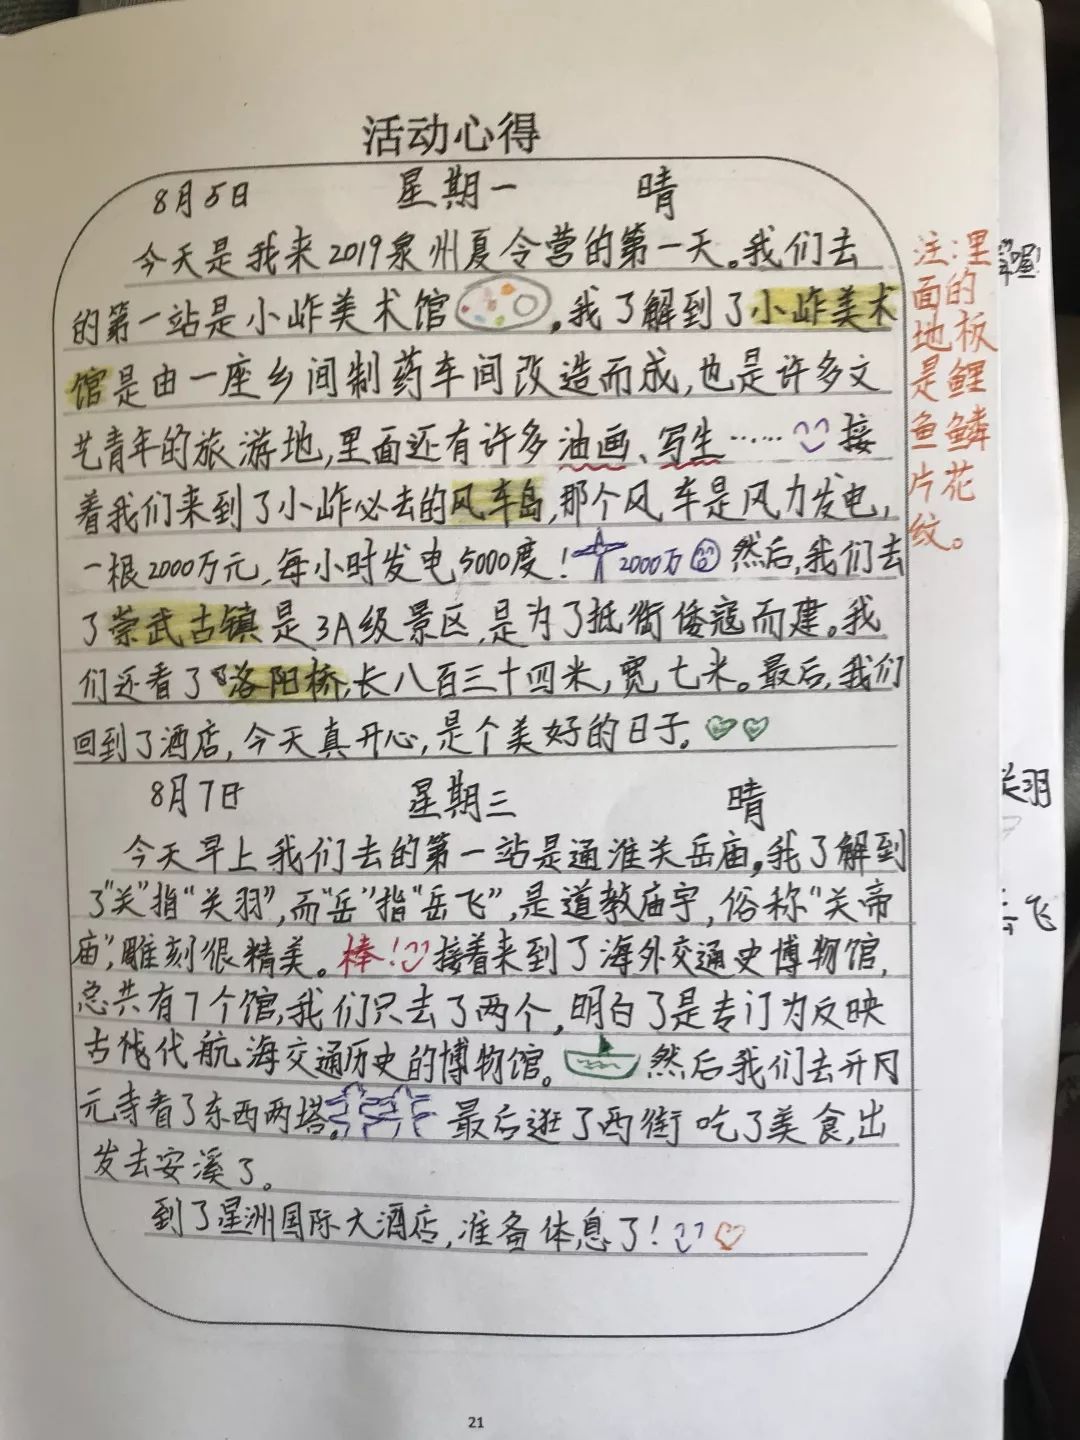 活动心得
8月5日 星期一 晴
今天是我来2019泉州夏令营的第一天。我们去
的第一站是小岞美术馆,我了解到了小岞美术
馆是由一座乡间制药车间改造而成,也是许多文
艺青年的旅游地,里面还有许多油画、写生……接
着我们来到了小岞必去的风车岛,那个风车是风力发电,
一根2000万元,每小时发电5000度!2000万 然后,我们去
了崇武古镇是3A级景区,是为了抵御倭寇而建。我
们还看了洛阳桥,长八百三十四米,宽七米。最后,我们
回到了酒店,今天真开心,是个美好的日子。
8月7日 星期三 晴
今天早上我们去的第一站是通淮关岳庙,我了解到
了“关”指“关羽”,而“岳”指“岳飞”,是道教庙宇,俗称“关帝
庙”,雕刻很精美。棒!接着来到了海外交通史博物馆,
总共有7个馆,我们只去了两个,明白了是专门为反映
古代航海交通历史的博物馆。然后我们去开
元寺看了东西两塔。最后逛了西街吃了美食,出
发去安溪了。
到了星洲国际大酒店,准备休息了!
注:里
面的
地板
是鲤
鱼鳞
片花
纹。
喔!
关羽
飞
21